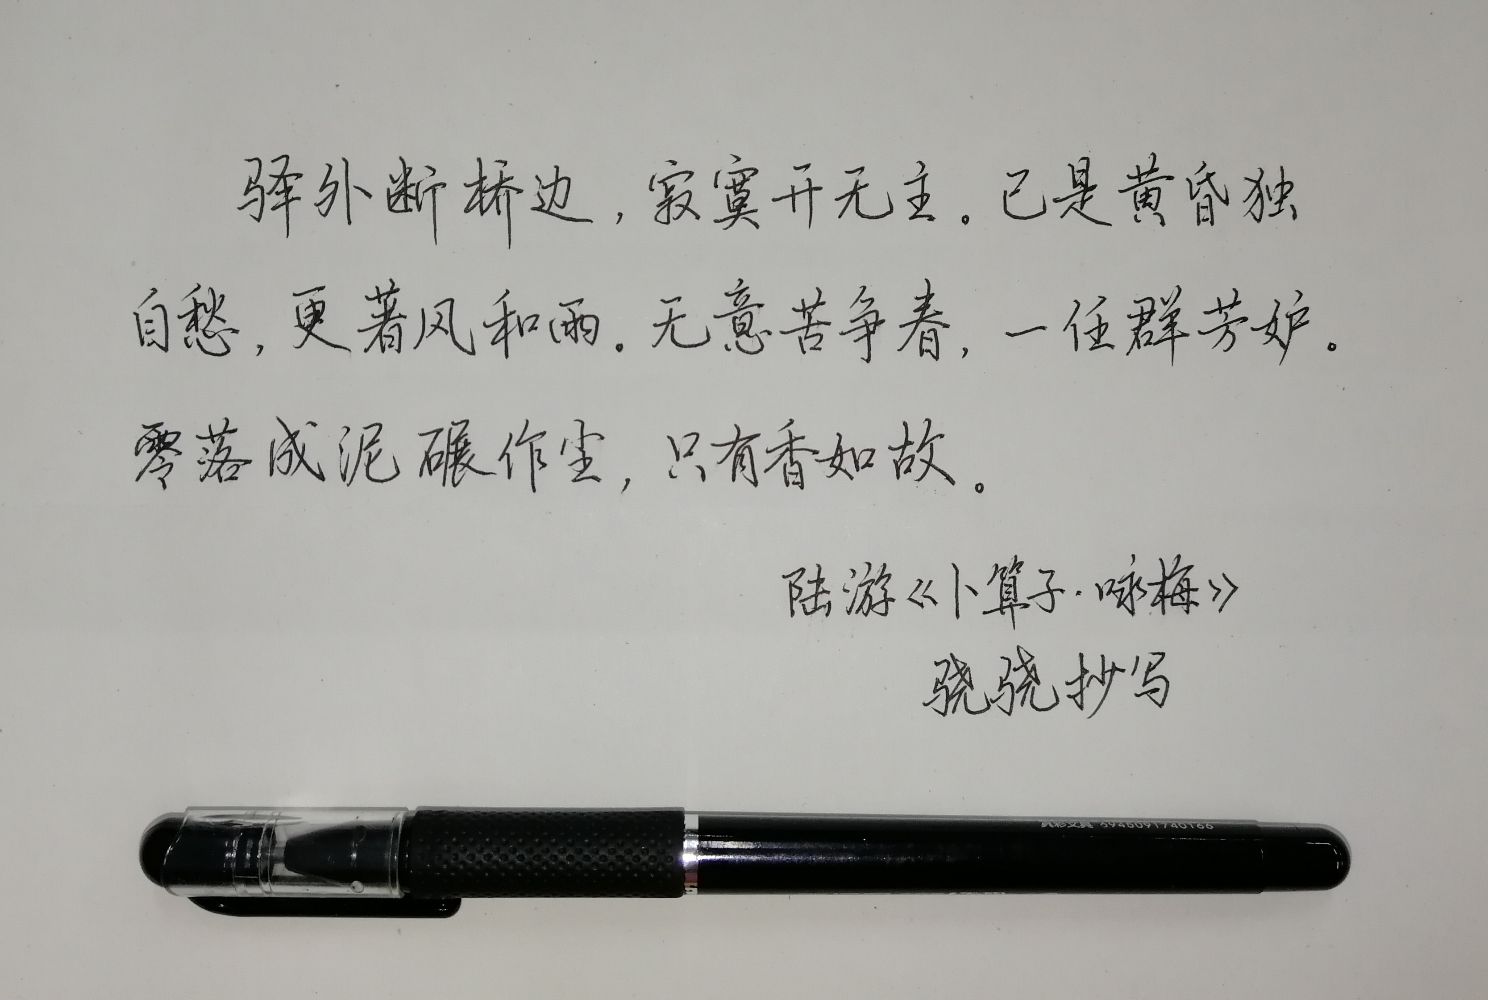 驿外断桥边，寂寞开无主。已是黄昏独
自愁，更著风和雨。无意苦争春，一任群芳妒。
零落成泥碾作尘，只有香如故。
陆游《卜算子·咏梅》
骁骁抄写
6946091740166